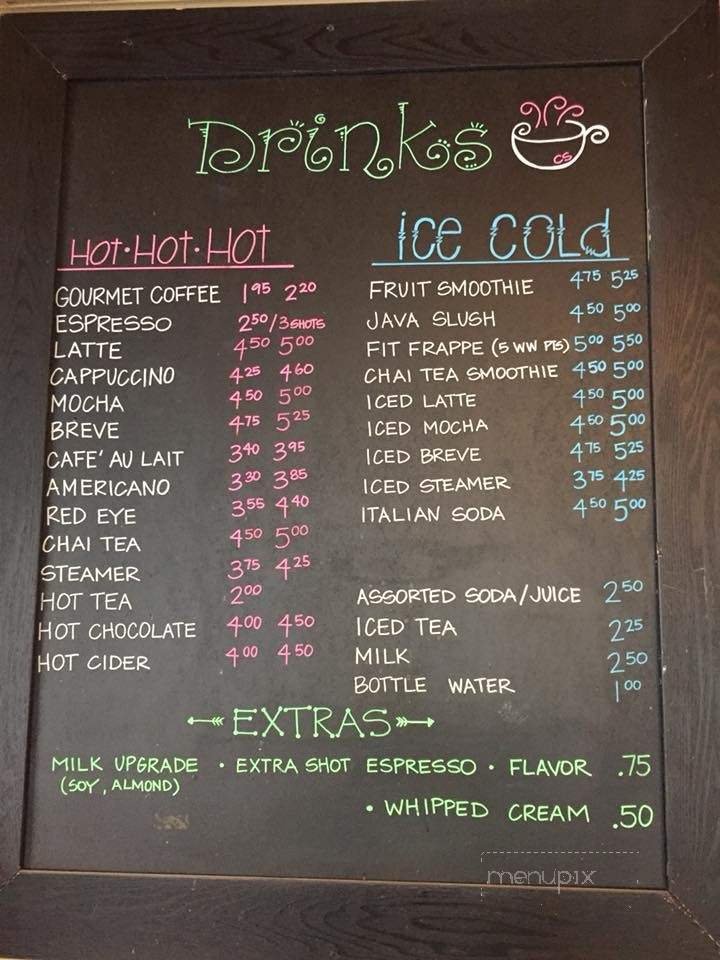 Drinks
CS
HOT·HOT·HOT
GOURMET COFFEE 1.95 2.20
ESPRESSO 2.50/3 SHOTS
LATTE 4.50 5.00
CAPPUCCINO 4.25 4.60
MOCHA 4.50 5.00
BREVE 4.75 5.25
CAFE' AU LAIT 3.40 3.95
AMERICANO 3.30 3.85
RED EYE 3.55 4.40
CHAI TEA 4.50 5.00
STEAMER 3.75 4.25
HOT TEA 2.00
HOT CHOCOLATE 4.00 4.50
HOT CIDER 4.00 4.50
ICE COLD
FRUIT SMOOTHIE 4.75 5.25
JAVA SLUSH 4.50 5.00
FIT FRAPPE (5 WW PTS) 5.00 5.50
CHAI TEA SMOOTHIE 4.50 5.00
ICED LATTE 4.50 5.00
ICED MOCHA 4.50 5.00
ICED BREVE 4.75 5.25
ICED STEAMER 3.75 4.25
ITALIAN SODA 4.50 5.00
ASSORTED SODA/JUICE 2.50
ICED TEA 2.25
MILK 2.50
BOTTLE WATER 1.00
EXTRAS
MILK UPGRADE · EXTRA SHOT ESPRESSO · FLAVOR .75
(SOY, ALMOND)
· WHIPPED CREAM .50
menupix